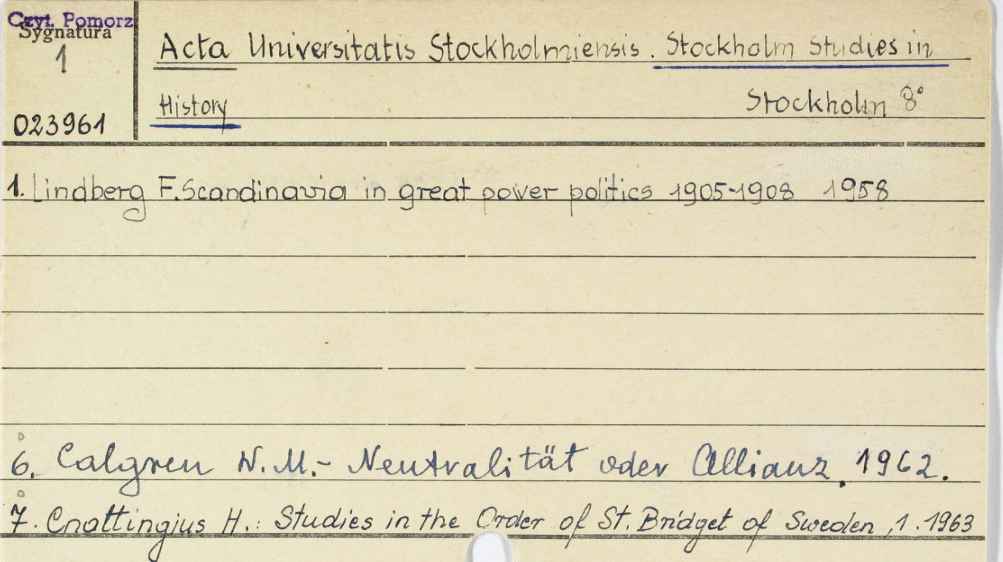 Czyt. Pomorz.
Sygnatura
1
023961
Acta Universitatis Stockholmiensis. Stockholm Studies in
History
Stockholm 8°
1. Lindberg F. Scandinavia in great power politics 1905-1908 1958
6. Calgren W.M.- Neutralität oder Allianz. 1962.
7. Cnattingius H.: Studies in the Order of St. Bridget of Sweden, 1. 1963